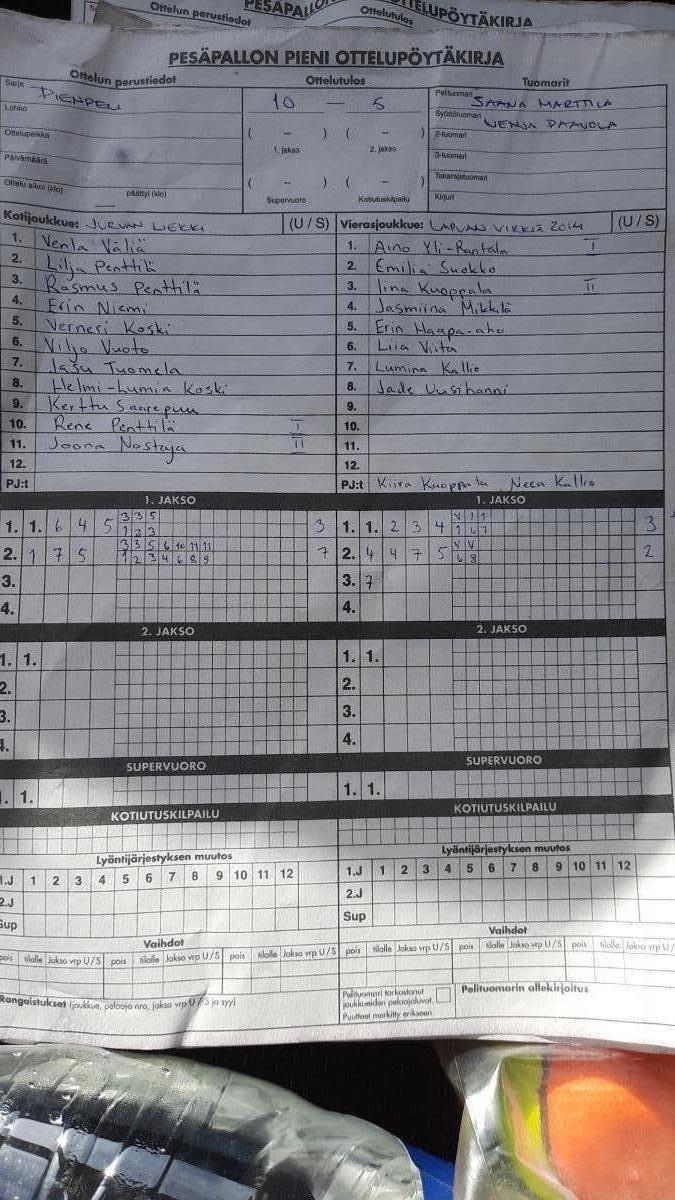 Ottelun perustiedot
Ottelutulos
PESÄPALLON PIENI OTTELUPÖYTÄKIRJA
Ottelun perustiedot
Ottelutulos
Tuomarit
Sarja PIENPELI
Lohko
Ottelupaikka
Päivämäärä
Ottelu alkoi (klo)
päättyi (klo)
10 — 5
( – ) ( – )
1. jakso 2. jakso
( – ) ( – )
Supervuoro Kotiutuskilpailu
Pelituomari SAANA MARTTILA
Syöttötuomari VENJA PAAVOLA
2-tuomari
3-tuomari
Takarajatuomari
Kirjuri
Kotijoukkue: JURVAN LIEKKI (U / S)
1. Venla Väliä
2. Lilja Penttilä
3. Rasmus Penttilä
4. Erin Niemi
5. Verneri Koski
6. Viljo Vuoto
7. Jasu Tuomela
8. Helmi-Lumia Koski
9. Kerttu Saarepuu
10. Rene Penttilä I
11. Joona Nostaja II
12.
PJ:t
Vierasjoukkue: LAPUAN VIRKIÄ 2014 (U / S)
1. Aino Yli-Rantala I
2. Emilia Suokko
3. Iina Kuoppala II
4. Jasmiina Mikkilä
5. Erin Haapa-aho
6. Liia Viita
7. Lumina Kallio
8. Jade Uusihanni
9.
10.
11.
12.
PJ:t Kiira Kuoppala Neea Kallio
1. JAKSO
1. 1. 6 4 5 3 3 5 3
1 2 3
2. 1 7 5 3 3 5 6 10 11 11 7
1 2 3 4 6 8 9
3.
4.
1. JAKSO
1. 1. 2 3 4 V 1 1 3
1 6 7
2. 4 4 7 5 V V 2
6 8
3. 7
4.
2. JAKSO
1. 1.
2.
3.
4.
2. JAKSO
1. 1.
2.
3.
4.
SUPERVUORO
1. 1.
SUPERVUORO
1. 1.
KOTIUTUSKILPAILU
KOTIUTUSKILPAILU
Lyöntijärjestyksen muutos
1.J 1 2 3 4 5 6 7 8 9 10 11 12
2.J
Sup
Lyöntijärjestyksen muutos
1.J 1 2 3 4 5 6 7 8 9 10 11 12
2.J
Sup
Vaihdot
pois tilalle Jakso vrp U / S pois tilalle Jakso vrp U / S pois tilalle Jakso vrp U / S
Vaihdot
pois tilalle Jakso vrp U / S pois tilalle Jakso vrp U / S pois tilalle Jakso vrp U /
Rangaistukset (joukkue, pelaaja nro, jakso vrp U / S ja syy)
Pelituomari tarkastanut
joukkueiden pelaajaluvat.
Puutteet merkitty erikseen
Pelituomarin allekirjoitus